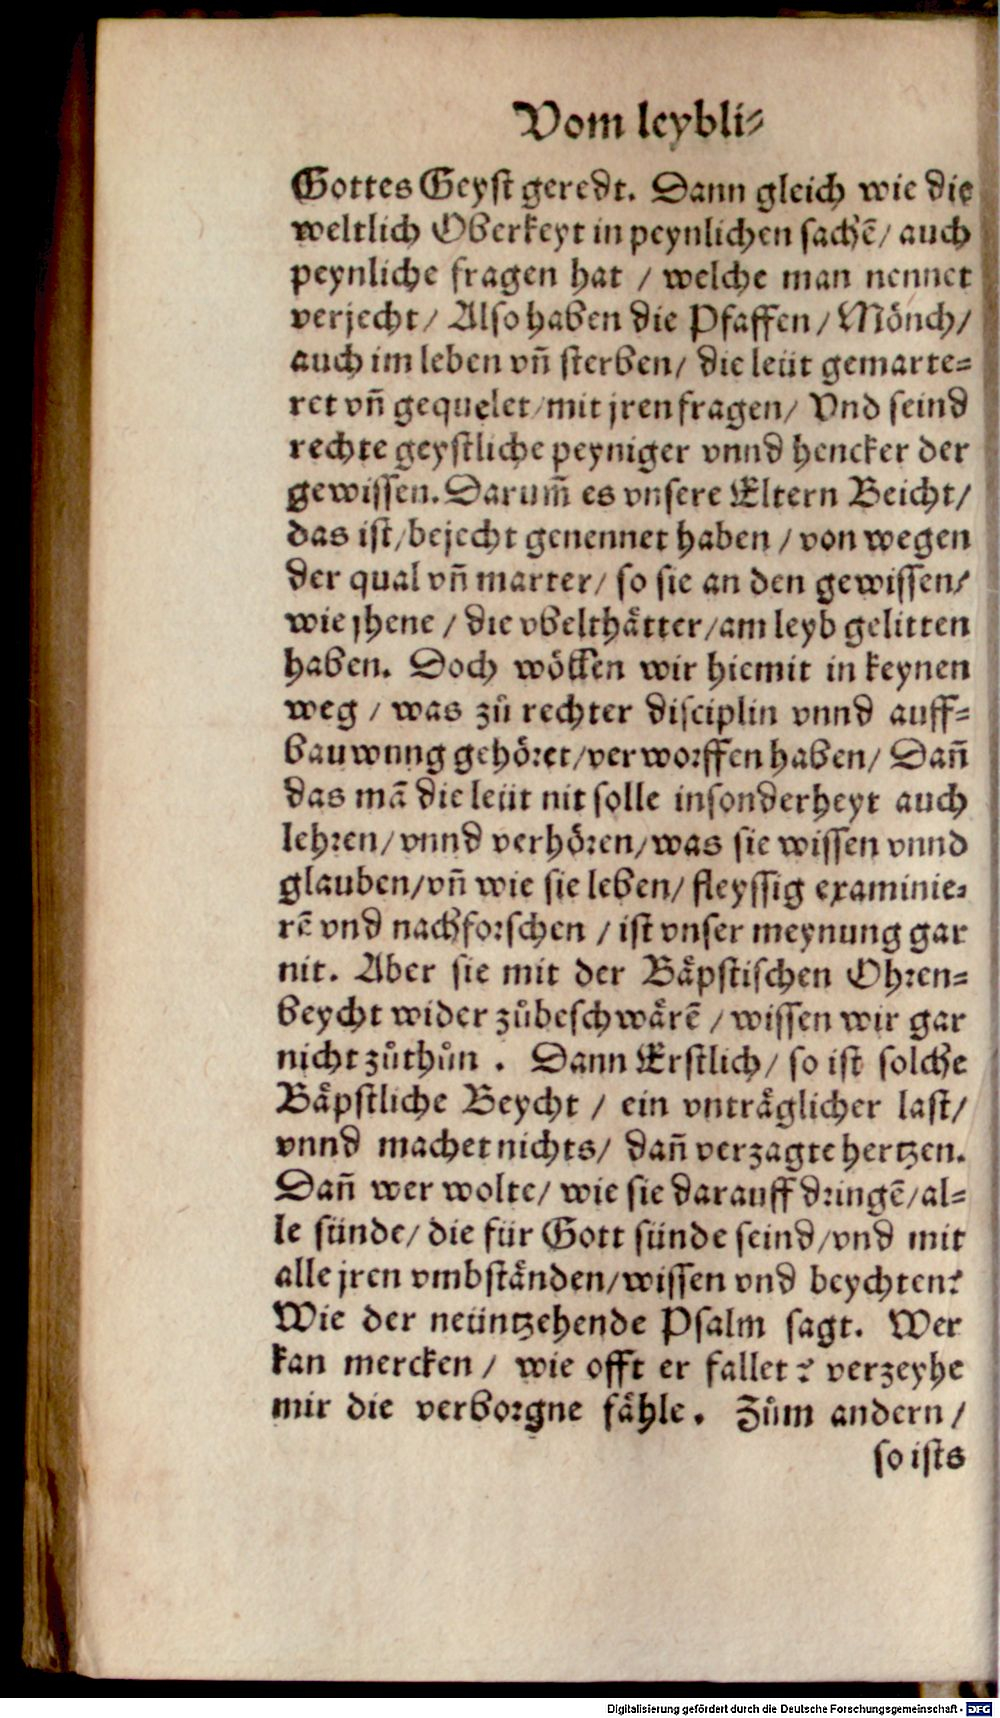 Vom leybli⸗
Gottes Geyst geredt. Dann gleich wie die
weltlich Oberkeyt in peynlichen sachē/ auch
peynliche fragen hat / welche man nennet
verjecht/ Also haben die Pfaffen/ Mönch/
auch im leben vn̄ sterben/ die leüt gemarte⸗
ret vn̄ gequelet/ mit jren fragen/ Vnd seind
rechte geystliche peyniger vnnd hencker der
gewissen. Darum̄ es vnsere Eltern Beicht/
das ist/ bejecht genennet haben / von wegen
der qual vn̄ marter/ so sie an den gewissen/
wie jhene / die vbelthåtter/ am leyb gelitten
haben. Doch wöllen wir hiemit in keynen
weg / was zů rechter disciplin vnnd auff⸗
bauwung gehöret/ verworffen haben/ Dan̄
das mā die leüt nit solle insonderheyt auch
lehren/ vnnd verhören/ was sie wissen vnnd
glauben/ vn̄ wie sie leben/ fleyssig examinie⸗
rē vnd nachforschen / ist vnser meynung gar
nit. Aber sie mit der Båpstischen Ohren⸗
beycht wider zůbeschwårē / wissen wir gar
nicht zůthůn . Dann Erstlich/ so ist solche
Båpstliche Beycht / ein vntråglicher last/
vnnd machet nichts/ dan̄ verzagte hertzen.
Dan̄ wer wolte/ wie sie darauff dringē/ al⸗
le sünde/ die für Gott sünde seind/ vnd mit
alle jren vmbstånden/ wissen vnd beychten?
Wie der neüntzehende Psalm sagt. Wer
kan mercken / wie offt er fallet? verzeyhe
mir die verborgne fåhle. Zům andern /
so ists
Digitalisierung gefördert durch die Deutsche Forschungsgemeinschaft - DFG